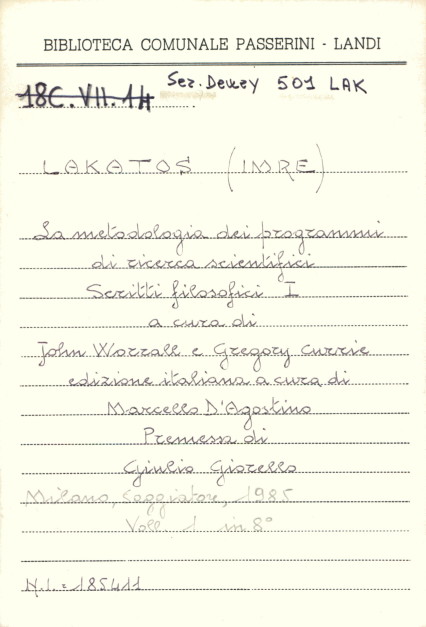 BIBLIOTECA COMUNALE PASSERINI - LANDI
Sez. Dewey 501 LAK
18C.VII.14
LAKATOS (IMRE)
La metodologia dei programmi
di ricerca scientifici
Scritti filosofici I
a cura di
John Worrall e Gregory Currie
edizione italiana a cura di
Marcello D'Agostino
Premessa di
Giulio Giorello
Milano, Saggiatore, 1985
Voll. 1 in 8°
N.I. = 185411